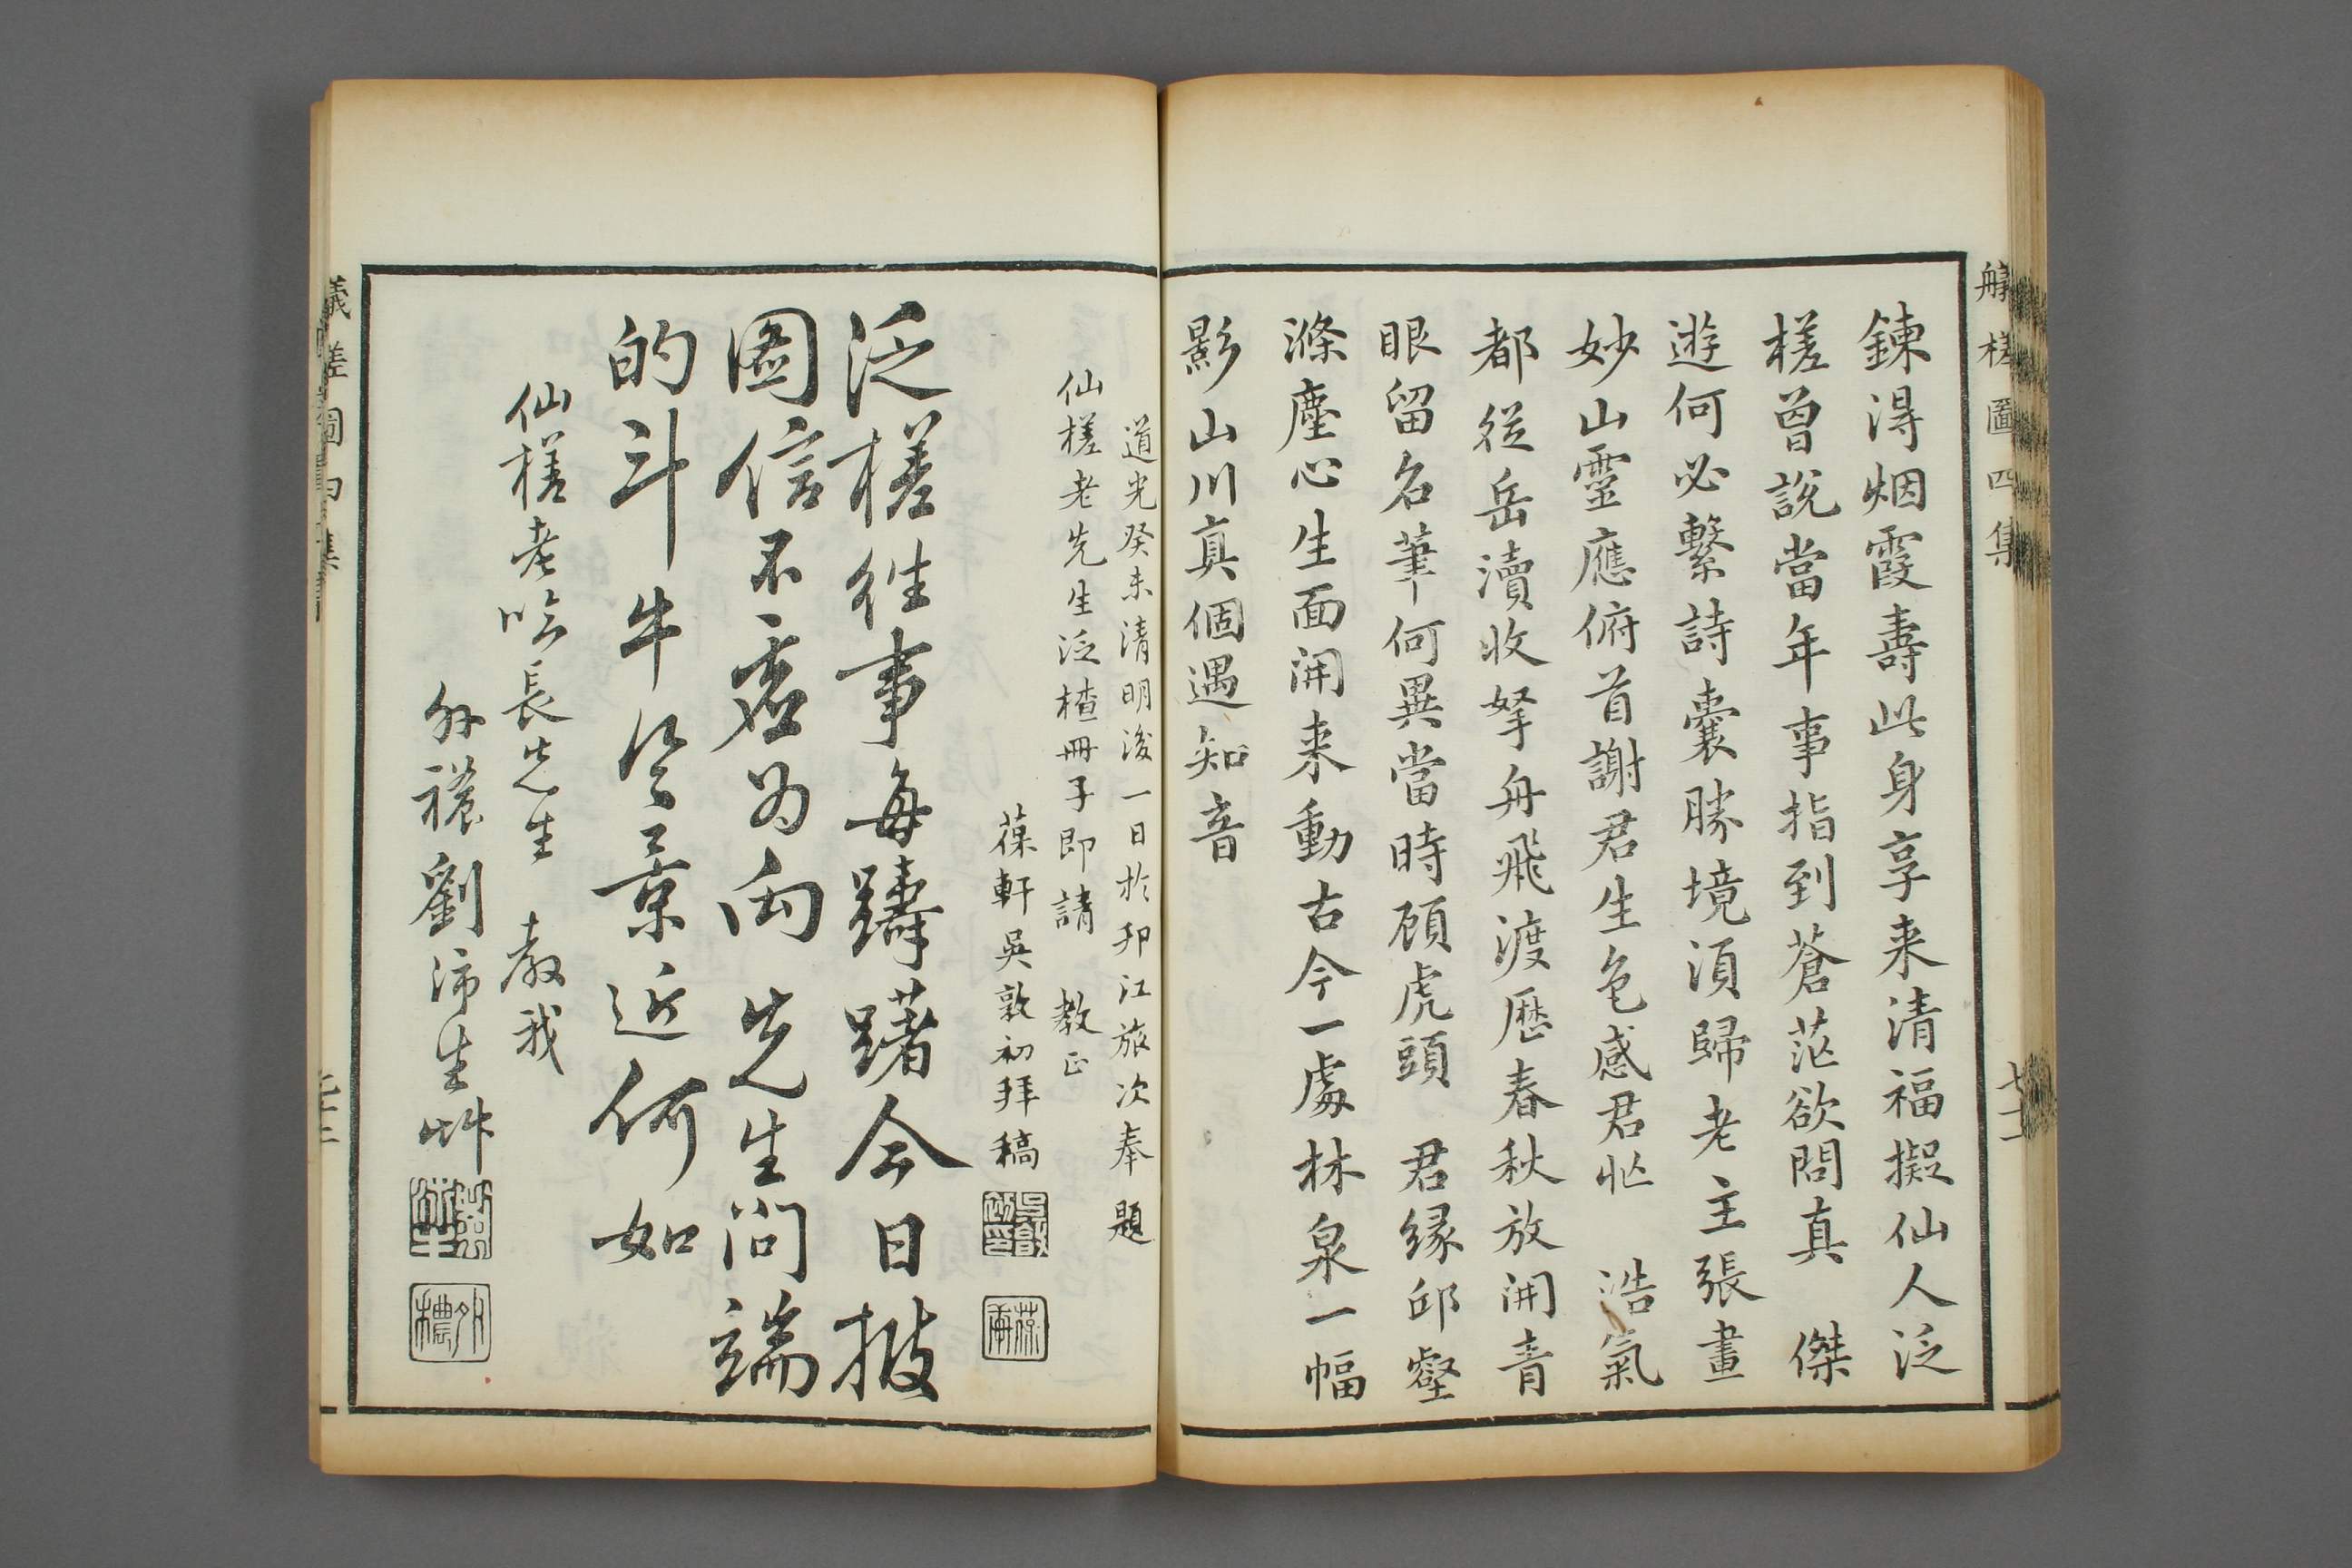 槎圖四集
鍊得烟霞壽此身享来清福擬仙人泛
槎曾說當年事指到蒼茫欲問真　傑
遊何必繫詩囊勝境須歸老主張畫
妙山靈應俯首謝君生色感君忙　浩氣
都從岳瀆收拏舟飛渡歷春秋放開青
眼留名筆何異當時顧虎頭　君緣邱壑
滌塵心生面開来動古今一處林泉一幅
影山川真個遇知音
道光癸未清明後一日於邗江旅次奉題
仙槎老先生泛楂冊子即請　教正
葆軒吳敦初拜稿
泛槎往事每躊躇今日披
圖信不虛為向先生問端
的斗牛公景近何如
仙槎老吟長先生　教我
外穠劉沛生艸
外穠
槎圖四集